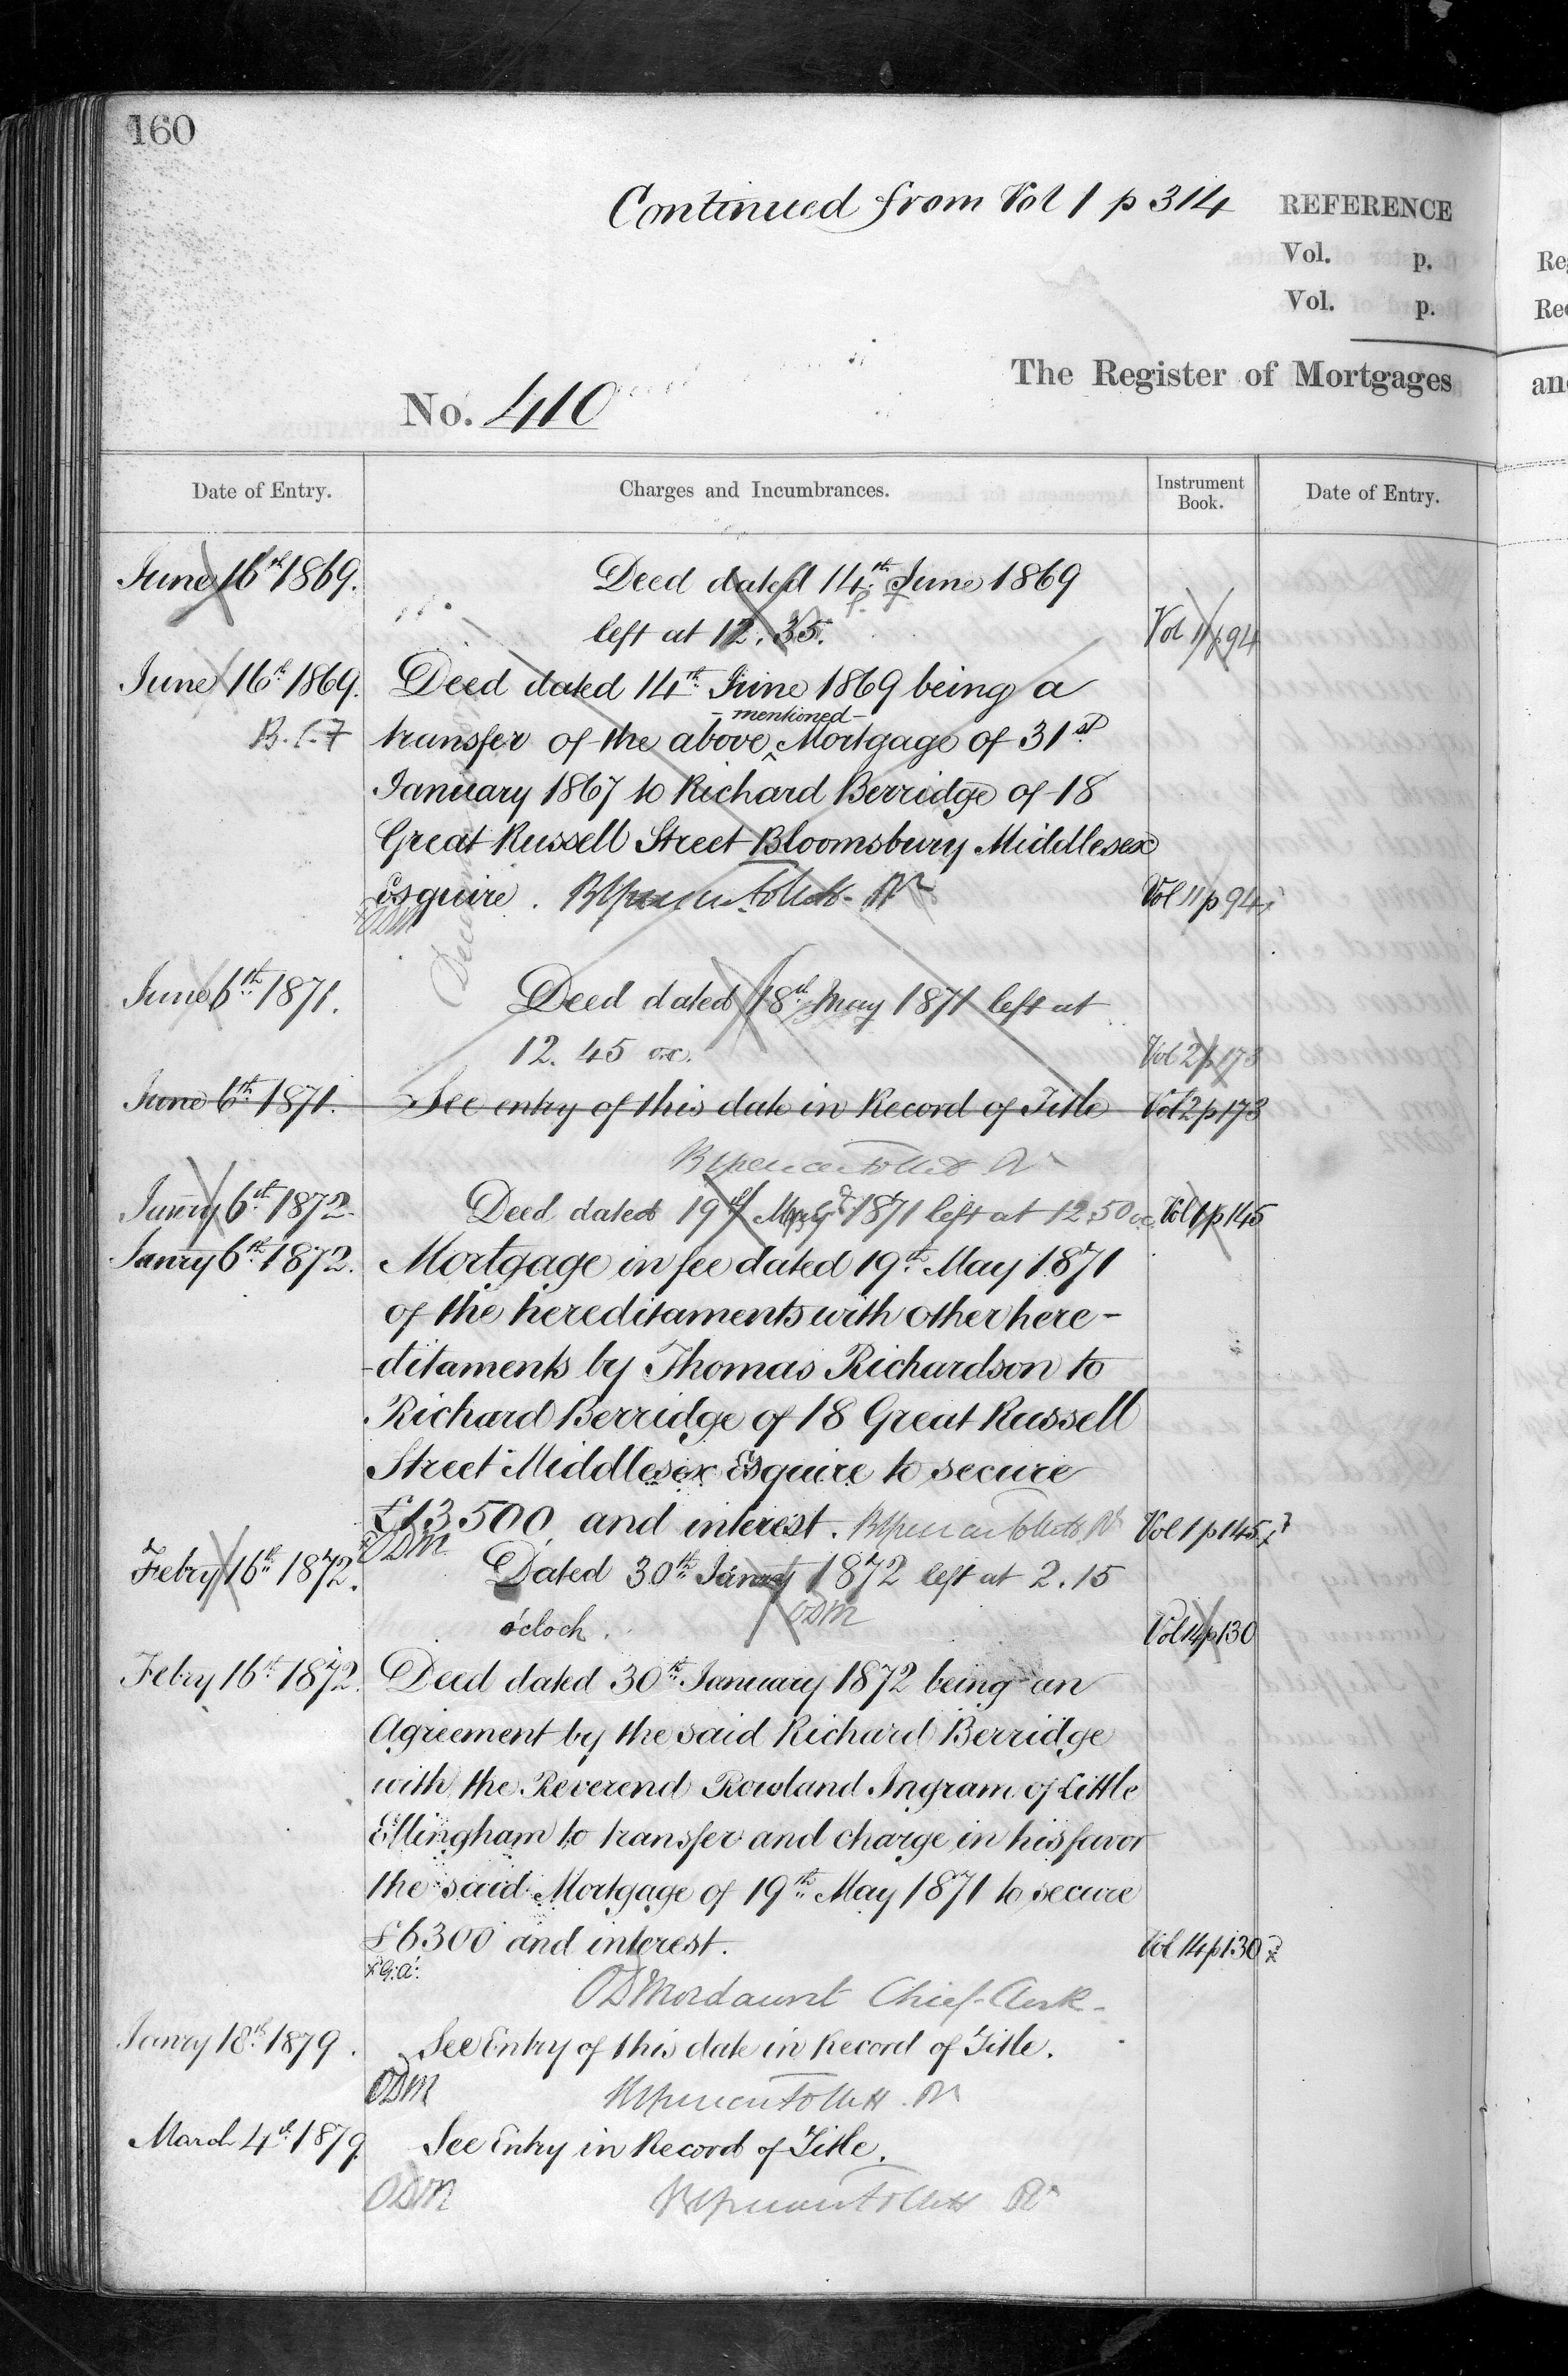 160
Continued from Vol 1 p 314
REFERENCE
Vol. p.
Vol. p.
The Register of Mortgages
No. 410
Date of Entry. Charges and Incumbrances. Instrument Book. Date of Entry.
June 16th 1869. Deed dated 14th June 1869
left at 12.35. Vol 11 p 94
June 16th 1869. Deed dated 14th June 1869 being a
B.L.7 transfer of the above -mentioned- Mortgage of 31st
January 1867 to Richard Berridge of 18
Great Russell Street Bloomsbury Middlesex
Esquire. Vol 11 p 94
ODM
June 6th 1871. Deed dated 18th May 1871 left at
12.45 oc. Vol 2 p 173
June 6th 1871. See entry of this date in Record of Title Vol 2 p 173
Janry 6th 1872. Deed dated 19th May 1871 left at 12.50 oc Vol 1 p 145
Janry 6th 1872. Mortgage in fee dated 19th May 1871
of the hereditaments with other here-
-ditaments by Thomas Richardson to
Richard Berridge of 18 Great Russell
Street Middlesex Esquire to secure
£13,500 and interest. Vol 1 p 145
ODM
Febry 16th 1872. Dated 30th Janry 1872 left at 2.15
o'clock. ODM Vol 14 p 130
Febry 16th 1872. Deed dated 30th January 1872 being an
Agreement by the said Richard Berridge
with the Reverend Rowland Ingram of Little
Ellingham to transfer and charge in his favor
the said Mortgage of 19th May 1871 to secure
£6300 and interest. Vol 14 p 130
x G.A.
ODMordaunt Chief Clerk-
Janry 18th 1879. See Entry of this date in Record of Title.
ODM
March 4th 1879 See Entry in Record of Title.
ODM